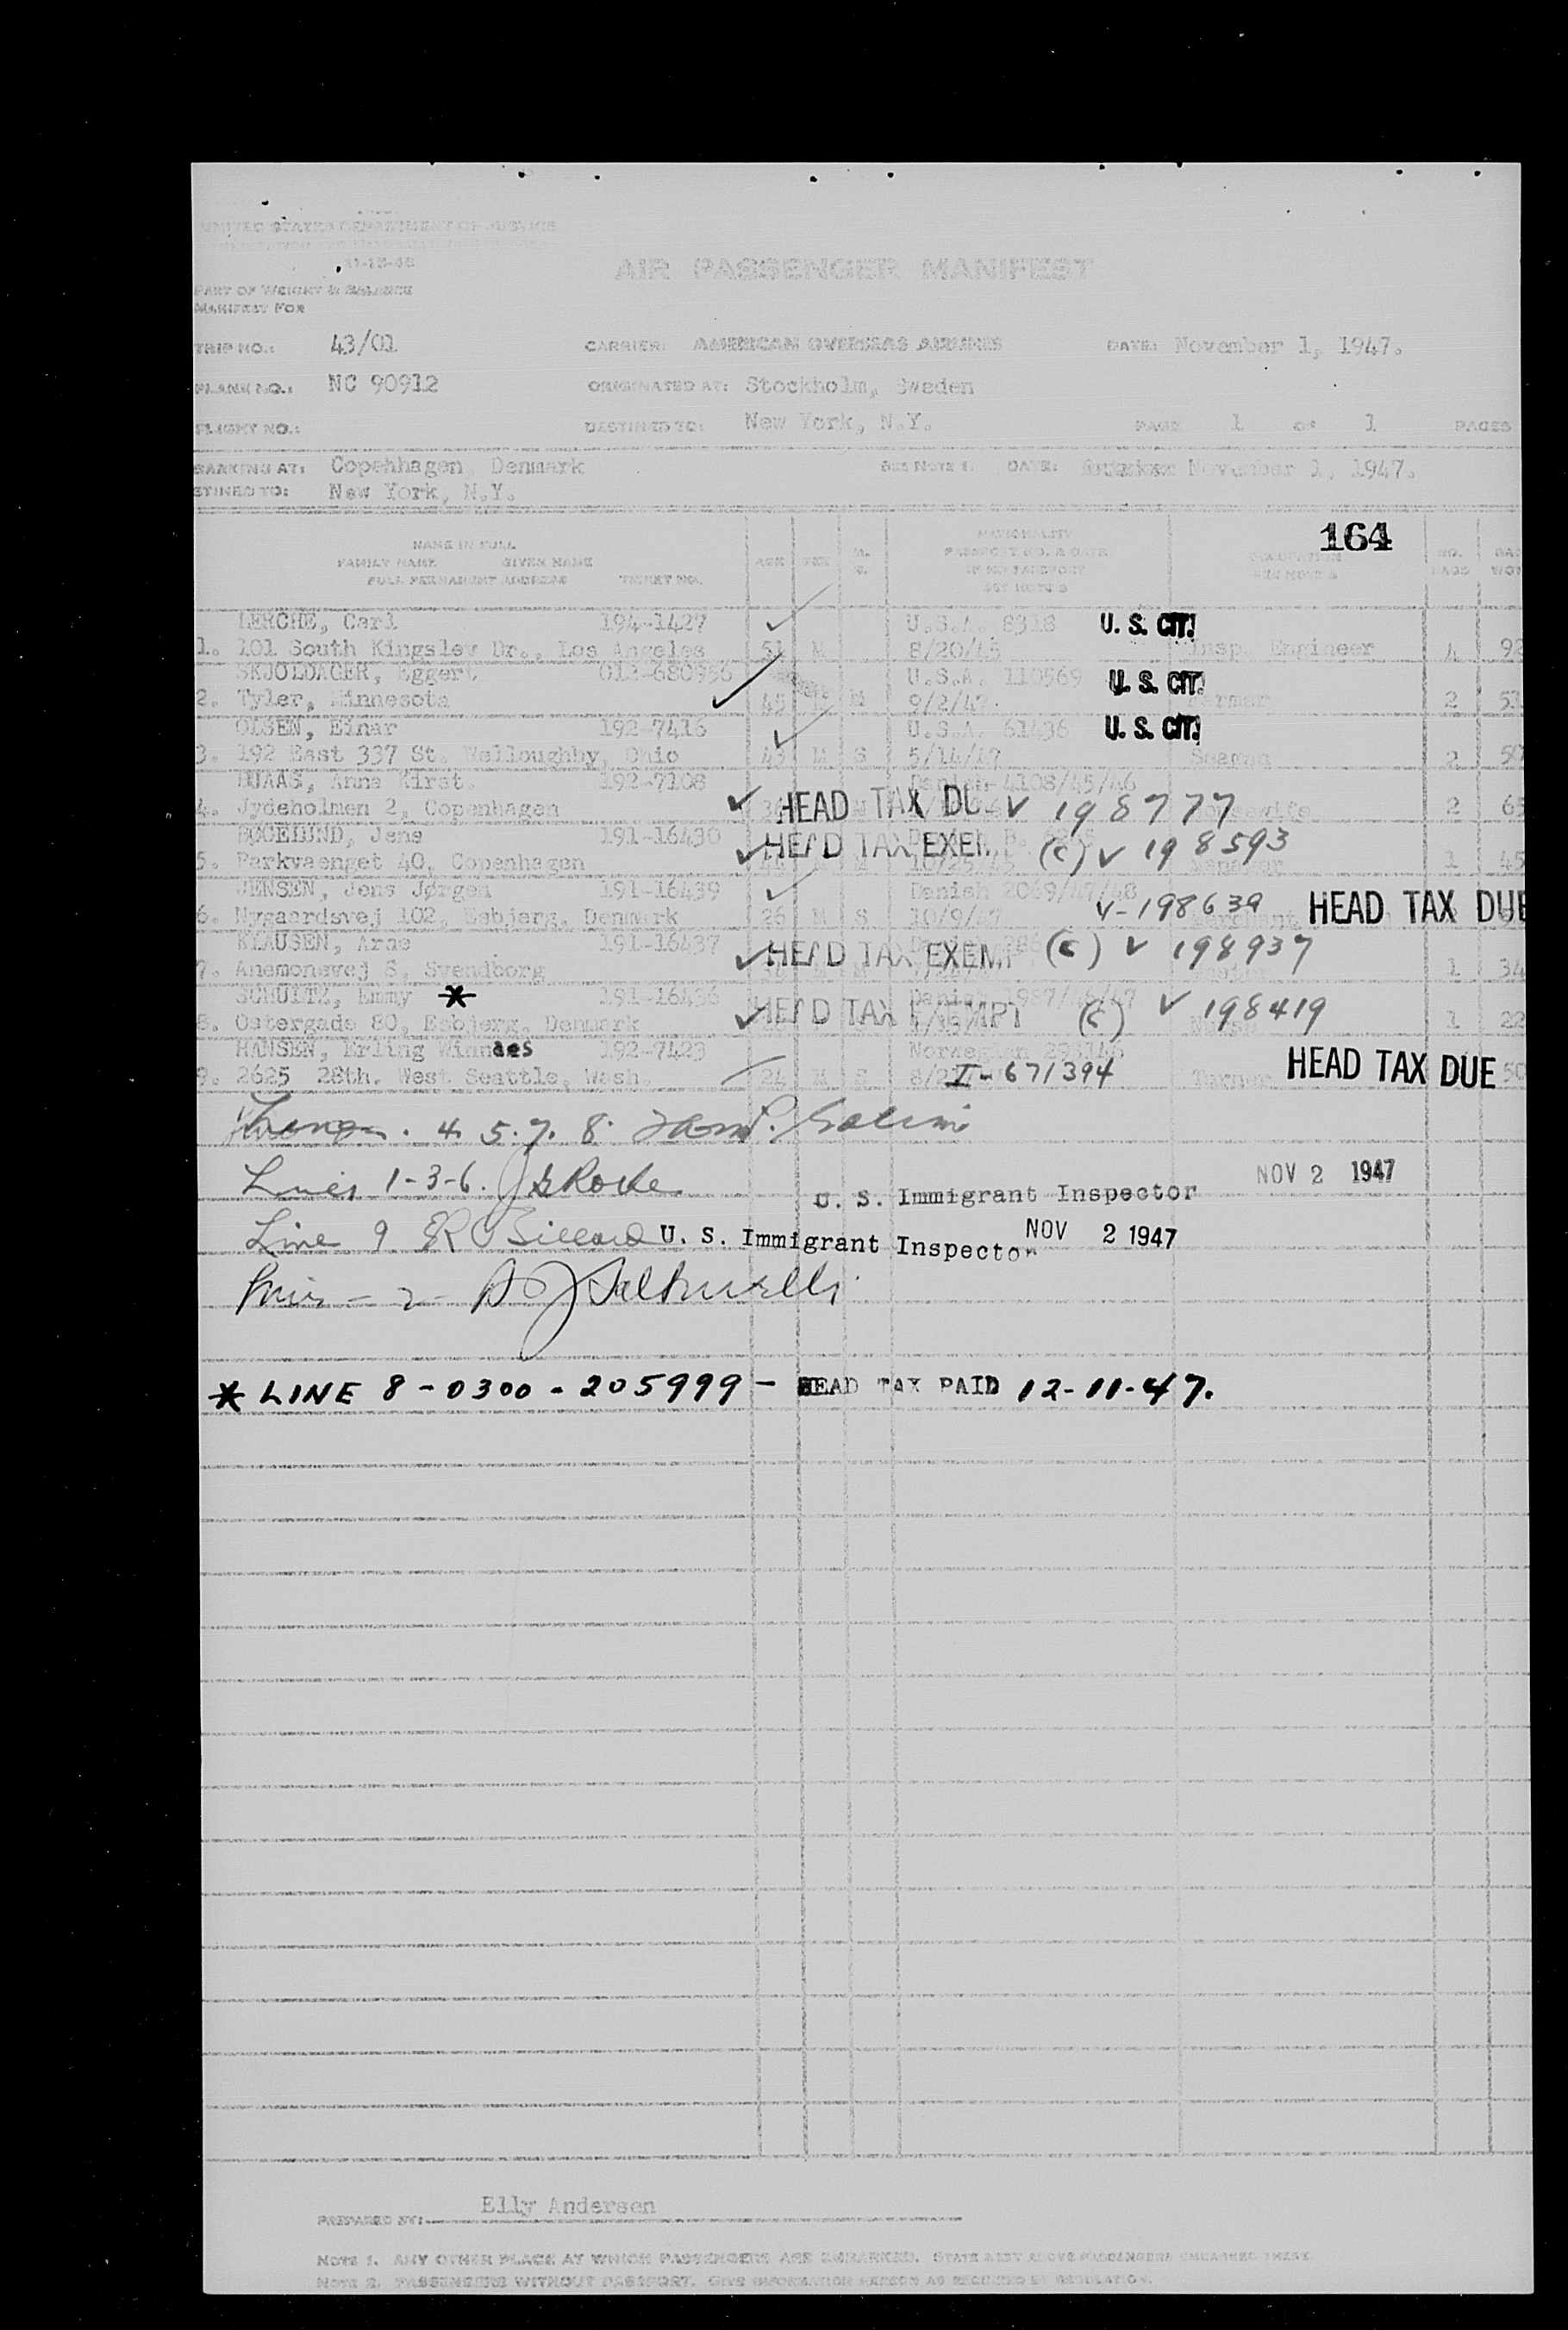 UNITED STATES DEPARTMENT OF JUSTICE
11-15-46
AIR PASSENGER MANIFEST
PART OF WEIGHT & BALANCE
MANIFEST FOR
TRIP NO.: 43/01 CARRIER: AMERICAN OVERSEAS AIRLINES DATE: November 1, 1947.
PLANE NO.: NC 90912 ORIGINATED AT: Stockholm, Sweden
FLIGHT NO.: DESTINED TO: New York, N.Y. PAGE 1 OF 1 PAGES
BARKING AT: Copenhagen, Denmark SEE NOTE 1. DATE: November 1, 1947.
STINED TO: New York, N.Y.
164
NAME IN FULL
FAMILY NAME GIVEN NAME
FULL PERMANENT ADDRESS TICKET NO. AGE SEX M. S. NATIONALITY PASSPORT NO. & DATE IF NO PASSPORT SEE NOTE 2 OCCUPATION SEE NOTE 2 NO. BAGS
LERCHE, Carl 194-1427 U.S.A. 8318 U. S. CIT.
1. 101 South Kingsley Dr., Los Angeles 51 M 8/20/45 Insp. Engineer 4 92
SKJOLDAGER, Eggert U.S.A. 110569 U. S. CIT.
2. Tyler, Minnesota 45 M 9/2/47. Farmer 2 51
OLSEN, Einar 192-7416 U.S.A. 61436 U. S. CIT.
3. 192 East 337 St. Welloughby, Ohio 43 M S 5/14/47 Seaman 2 50
DUAAS, Anna Kirst. 192-7108 Danish 4108/45/46
4. Jydeholmen 2, Copenhagen HEAD TAX DU V 198777 Housewife 2 65
BOGELUND, Jens 191-16430
5. Parkvaenget 40, Copenhagen HEAD TAX EXEM (C) V 198593 10/25/45 Manager 1 45
JENSEN, Jens Jørgen 191-16439 Danish 2069/47/48
6. Nygaardsvej 102, Esbjerg, Denmark 26 M S 10/9/47 V-198639 HEAD TAX DUE
KLAUSEN, Arne 191-16437
7. Anemonevej 8, Svendborg HEAD TAX EXEMP (C) V 198937 1 34
SCHULTZ, Emmy * 191-16436
8. Ostergade 80, Esbjerg, Denmark HEAD TAX EXEMPT (C) V 198419 1 22
HANSEN, Erling Winnaes 192-7423 Norwegian
9. 2625 28th. West Seattle, Wash. 24 M S I-671394 Turner HEAD TAX DUE 50
4. 5. 7. 8.
Lines 1-3-6. NOV 2 1947
U. S. Immigrant Inspector
Line 9 U. S. Immigrant Inspector NOV 2 1947
* LINE 8-0300-205999 - HEAD TAX PAID 12-11-47.
PREPARED BY: Elly Andersen
NOTE 1. ANY OTHER PLACE AT WHICH PASSENGERS ARE EMBARKED. STATE ABOVE PASSENGERS EMBARKED THERE.
NOTE 2. PASSENGERS WITHOUT PASSPORT. GIVE INFORMATION HEREON AS REQUIRED BY REGULATION.